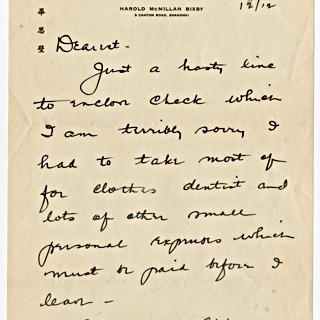 畢
思
璧
HAROLD McMILLAN BIXBY
9 CANTON ROAD, SHANGHAI
12/12
Dearest -
Just a hasty line
to enclose check which
I am terribly sorry I
had to take most of
for clothes dentist and
lots of other small
personal expenses which
must be paid before I
leave -